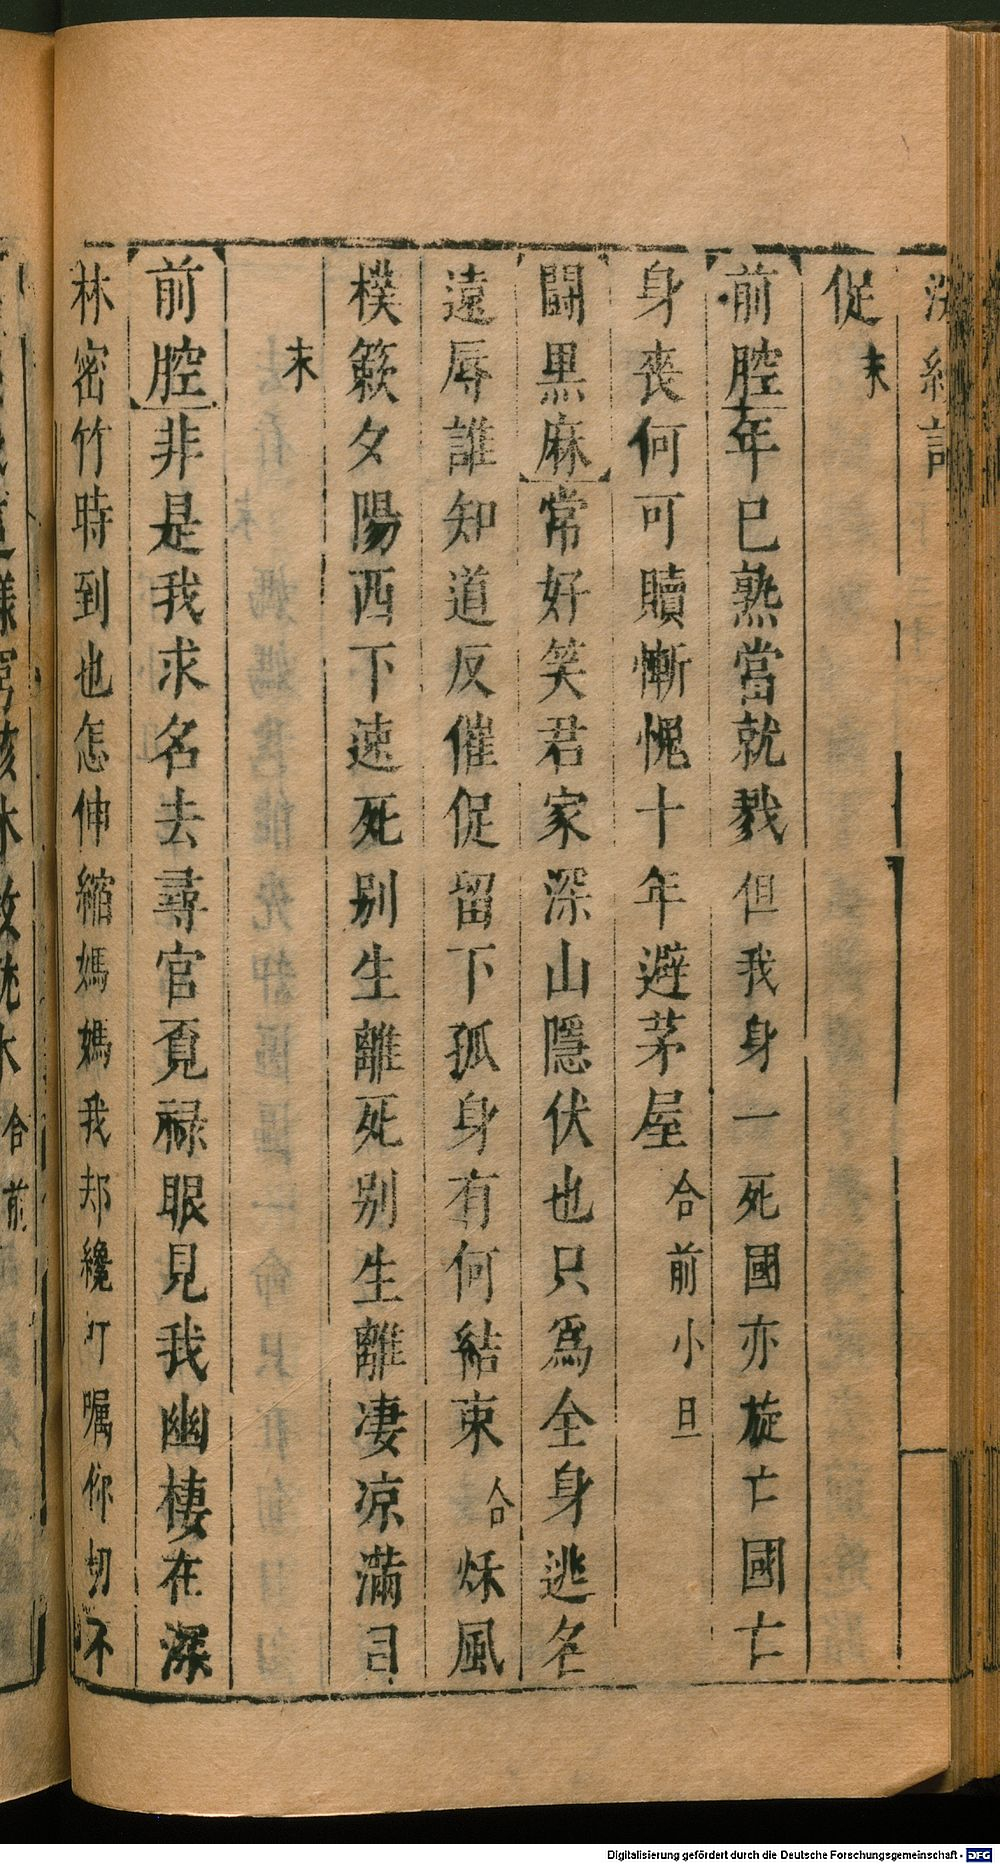 浣紗記
促 末
前腔 年已熟當就戮但我身一死國亦旋亡國亡
身喪何可贖慚愧十年避茅屋 合前 小旦
鬪黑麻 常好笑君家深山隱伏也只爲全身逃名
遠辱誰知道反催促留下孤身有何結束 合 秌風
樸簌夕陽西下速死别生離死别生離凄凉滿目
末
前腔 非是我求名去尋官覓禄眼見我幽棲在深
林密竹時到也怎伸縮媽媽我却纔叮嘱你切不
合前
Digitalisierung gefördert durch die Deutsche Forschungsgemeinschaft - DFG